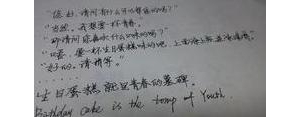 "您好,请问有什么可以帮您的吗?"
"当然,我想要一杯青春。"
"那请问你喜欢什么口味的吗?"
"我要一杯生日蛋糕味的吧,上面
"好的。请稍等。"
......
生日蛋糕就是青春的墓碑。
Birthday cake is the tomp of Youth.